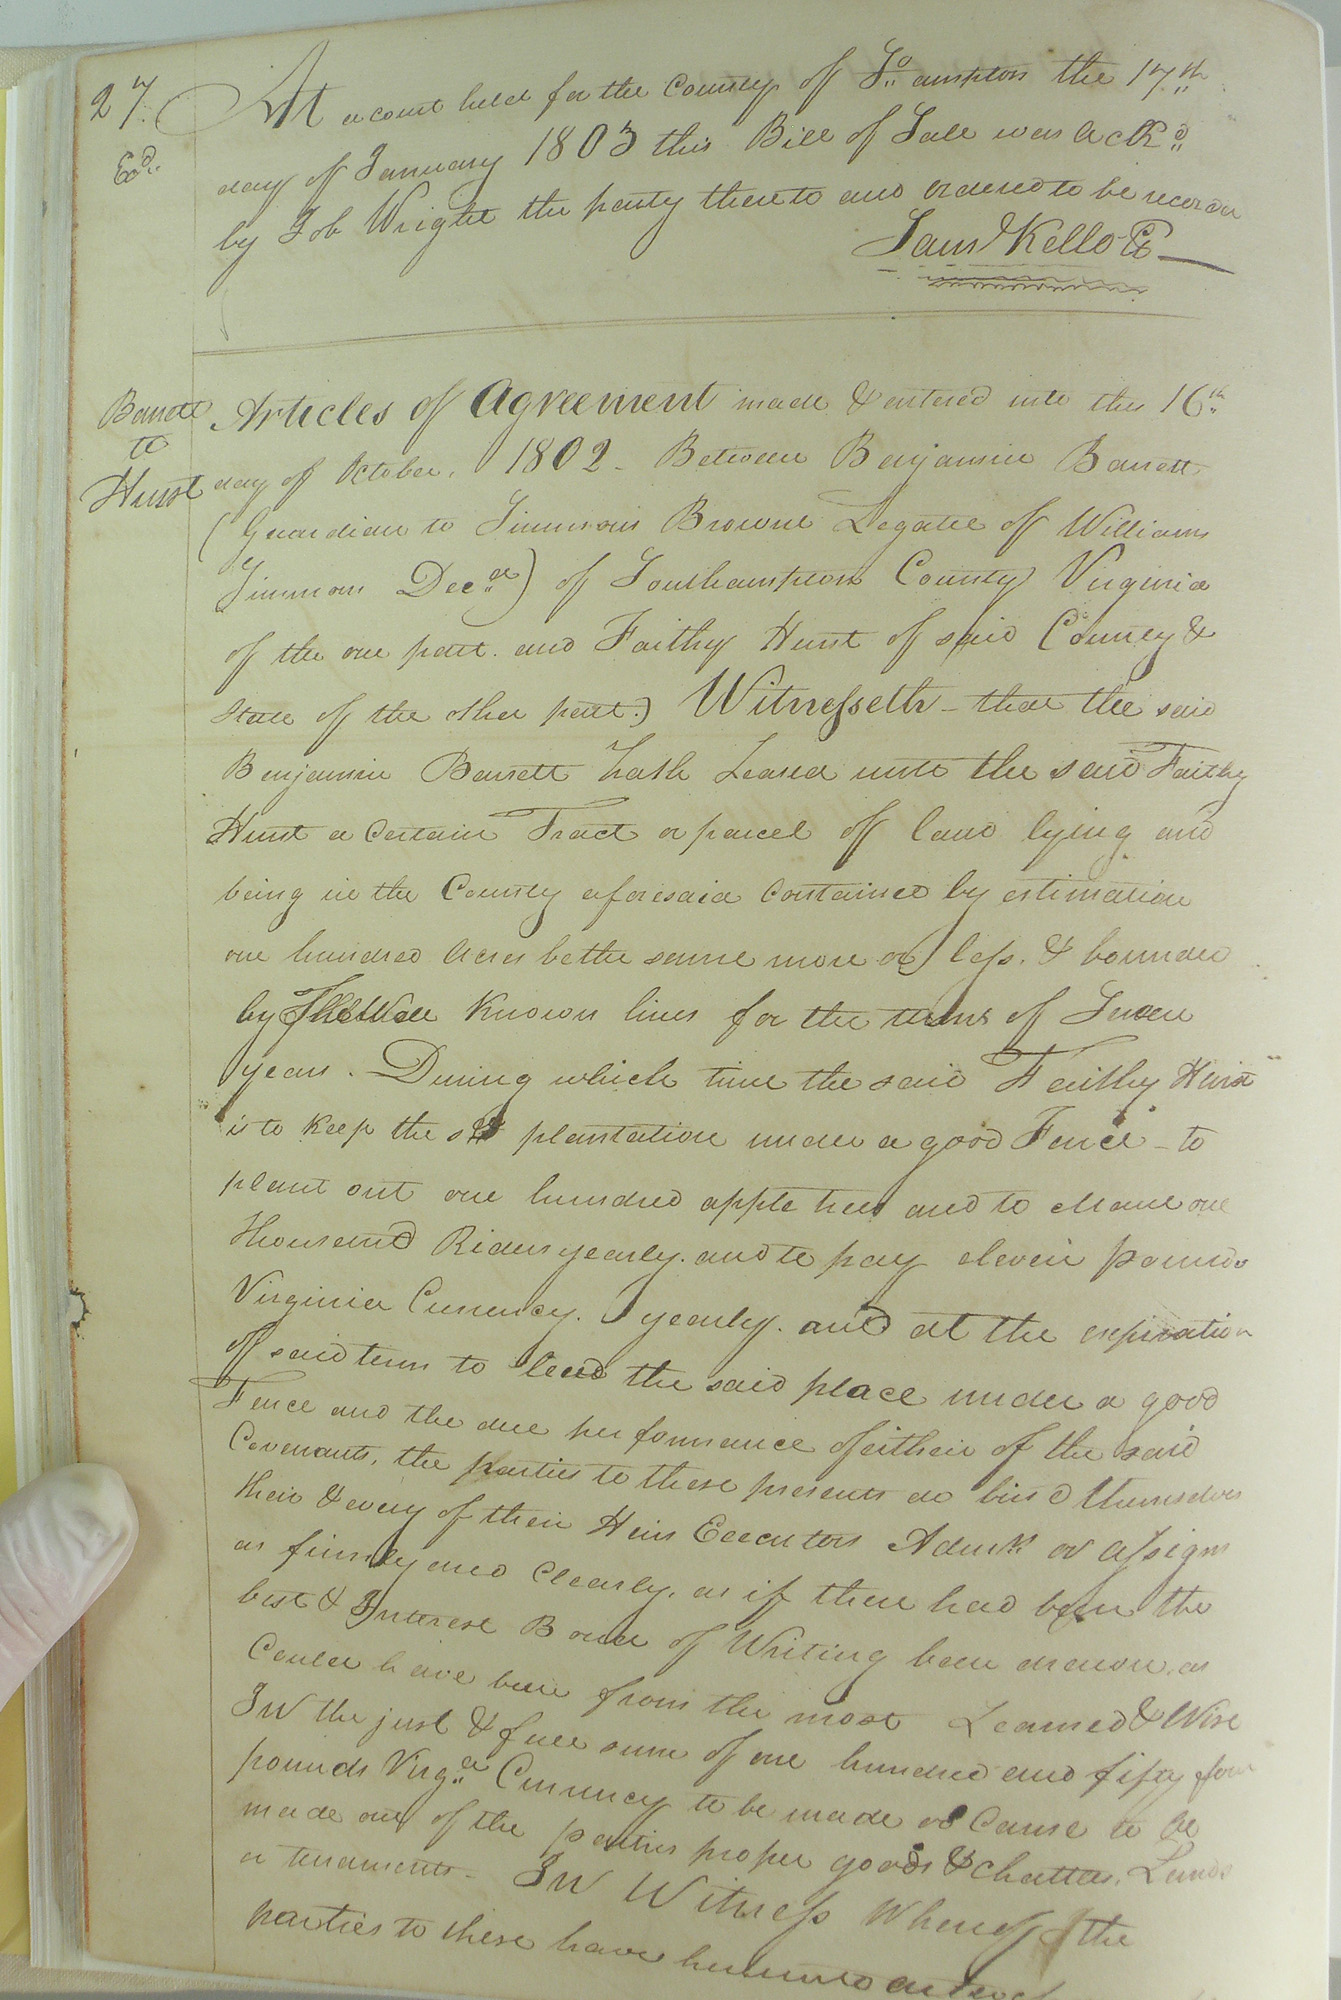 27.
Exd.
At a court held for the County of So.ampton the 17th
day of January 1803 this Bill of Sale was ackd.
by Job Wright the party thereto and ordered to be recorded
Saml Kello CC
Barrett
to
Hurst
Articles of Agreement made & entered into this 16th
day of October. 1802. Between Benjamin Barrett
(Guardian to Simmons Browne Legatee of Williams
Simmons Decd.) of Southampton County Virginia
of the one part. and Faithy Hurst of said County &
State of the other part.) Witnesseth - that the said
Benjamin Barrett hath Leased unto the said Faithy
Hurst a Certain Tract or parcel off land lying and
being in the County aforesaid Contained by estimation
one hundred Acres be the same more or less. & bounded
by The Well Known lines for the term of Seven
years. During which time the said Faithy Hurst
is to Keep the sd plantation under a good Fence - to
plant out one hundred apple trees and to one
Thousand yearly. and to pay eleven pounds
Virginia Currency. yearly. and at the expiration
of said term to leed the said place under a good
Fence and the due performance of either of the said
Covenants, the parties to these presents do bind themselves
their & every of their Heirs Executors Admrs or assigns
as firmly and Clearly, as if there had been the
best & of Writing been drawn, as
Could have been from the most Learned & Wise
IN the just & full sum of one hundred and fifty four
pounds Virga. Currency to be made or Cause to be
made out of the parties proper goods & Chattes, Lands
or tenaments. IN Witness Whereof the
parties to these have hereunto